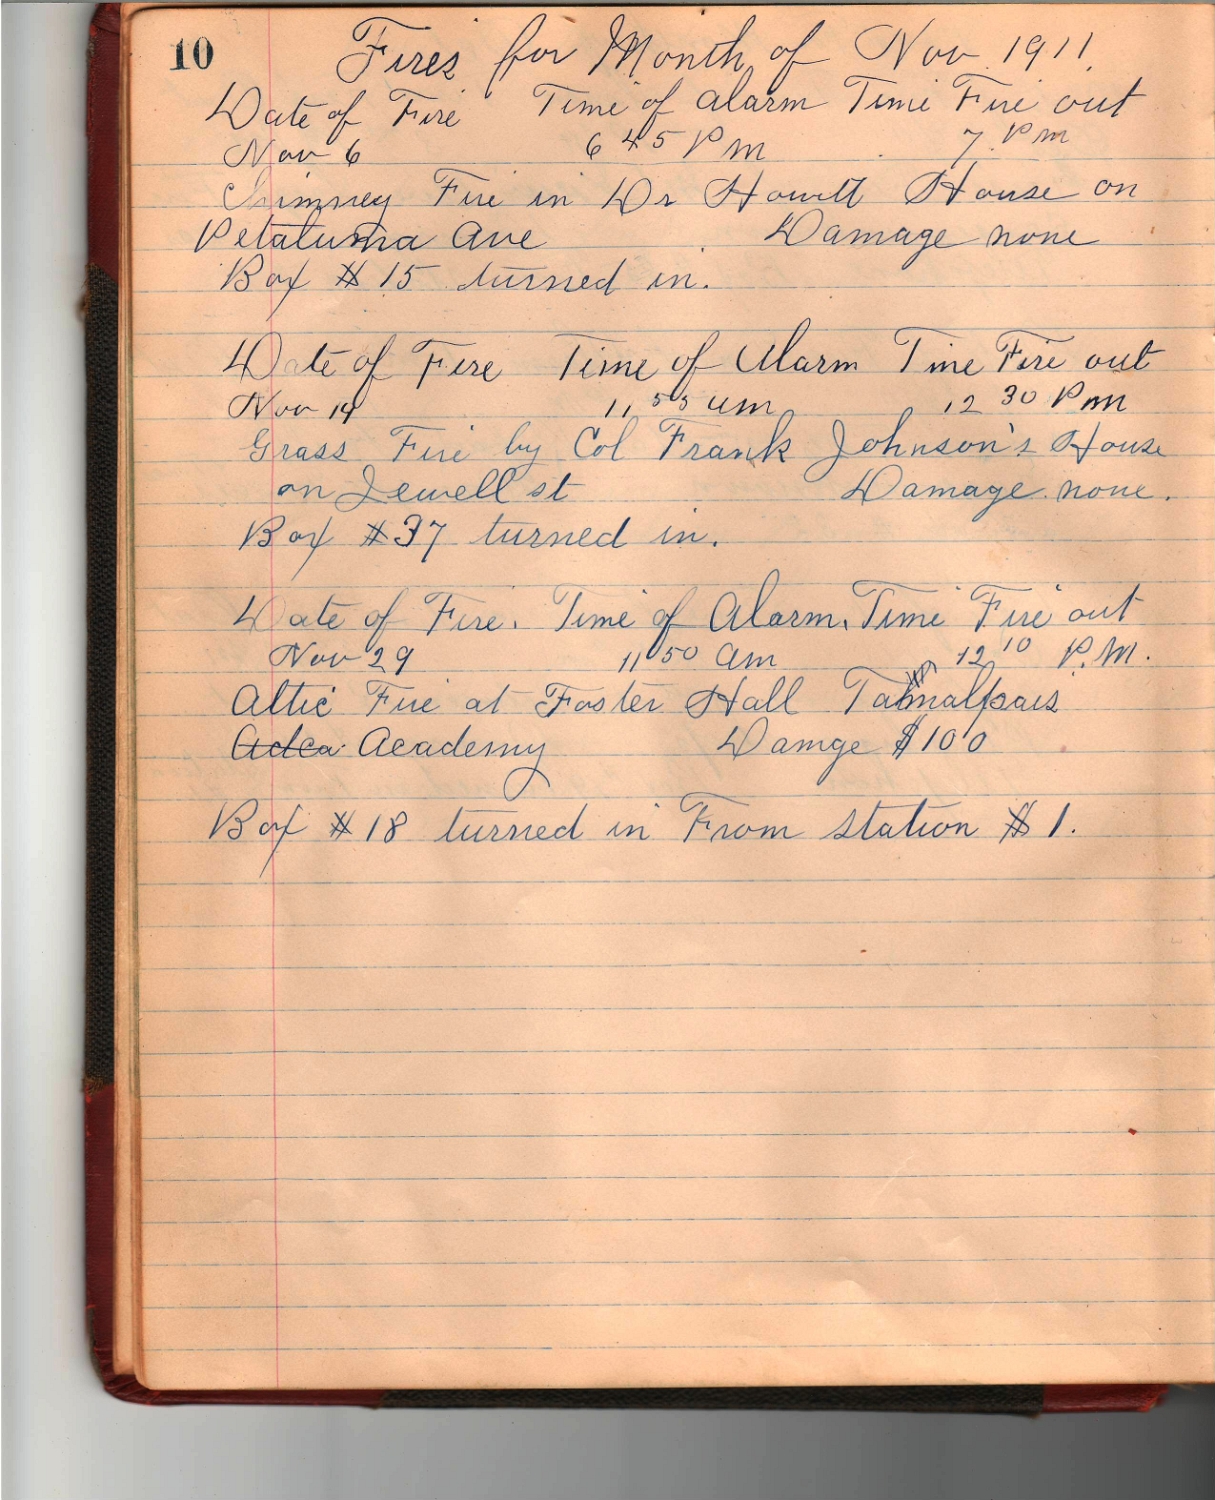 10
Fires for Month of Nov 1911
Date of Fire Time of alarm Time Fire out
Nov 6 6 45 P m 7 P m
Chimney Fire in Dr Howitt House on
Petaluma Ave Damage none
Box # 15 turned in.
Date of Fire Time of Alarm Time Fire out
Nov 14 11 55 am 12 30 P m
Grass Fire by Col Frank Johnson's House
on Jewell st Damage none.
Box # 37 turned in.
Date of Fire. Time of Alarm. Time Fire out
Nov 29 11 50 am 12 10 P.M.
Attic Fire at Foster Hall Tamalpais
Academy Damge $100
Box # 18 turned in From station # 1.